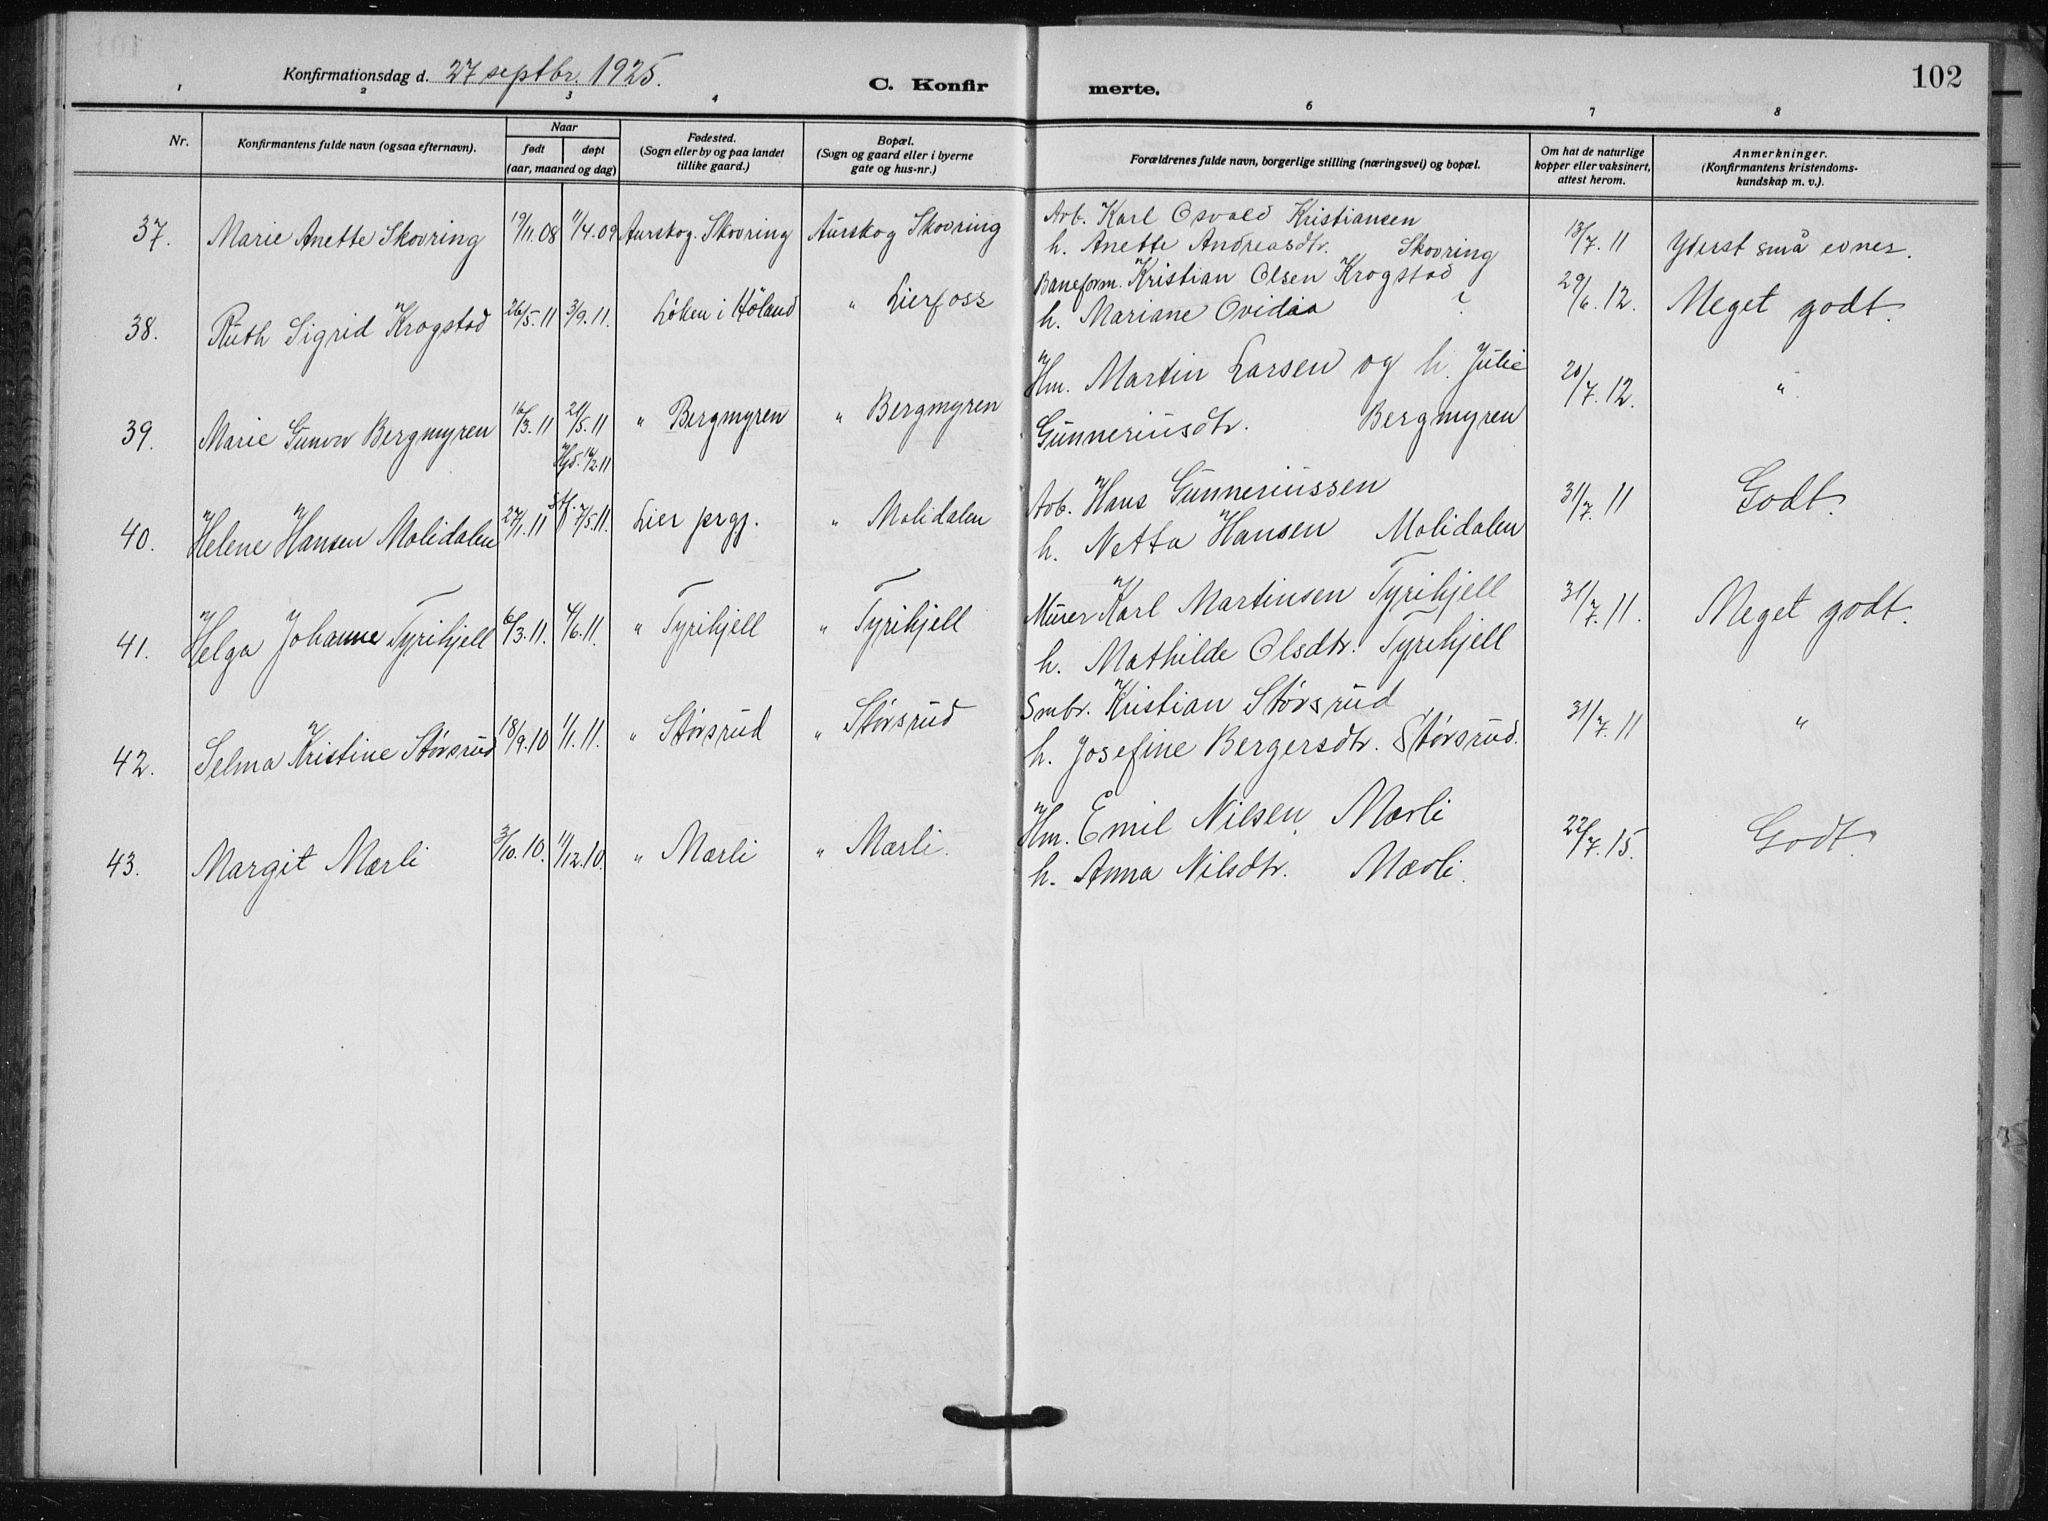 102
Konfirmationsdag d. 27 septbr. 1925.
C. Konfirmerte.
1 2 3 4 6 7 8
Nr. Konfirmantens fulde navn (ogsaa efternavn). Naar født døpt (aar, maaned og dag) Fødested. (Sogn eller by og paa landet tillike gaard.) Bopæl. (Sogn og gaard eller i byerne gate og hus-nr.) Forældrenes fulde navn, borgerlige stilling (næringsvei) og bopæl. Om hat de naturlige kopper eller vaksinert, attest herom. Anmerkninger. (Konfirmantens kristendomskundskap m. v.).
37. Marie Anette Skovring 19/11.08 11/4.09 Aurskog. Skovring Aurskog Skovring Arb. Karl Osvald Kristiansen
h. Anette Andreasdtr. Skovring 13/7.11 Yderst små evner.
38. Ruth Sigrid Krogstad 26/5.11 3/9.11. Løken i Höland " Lierfoss Baneform. Kristian Olsen Krogstad
h. Mariane Ovidia ? 29/6.12. Meget godt.
39. Marie Gunvor Bergmyren 16/3.11 21/5.11 " Bergmyren " Bergmyren Hm. Martin Larsen og h. Julie
Gunneriusdtr. Bergmyren 20/7.12. "
40. Helene Hansen Molidalen 27/1.11 Hjd. 16/2.11
Stf. 7/5.11. Lier prgj. " Molidalen Arb. Hans Gunneriussen
h. Netta Hansen Molidalen 31/7.11 Godt.
41. Helga Johanne Tyrihjell 6/3.11. 4/6.11. " Tyrihjell " Tyrihjell Murer Karl Martinsen Tyrihjell
h. Mathilde Olsdtr. Tyrihjell 31/7.11. Meget godt.
42. Selma Kristine Störsrud 18/9.10 1/1.11. " Störsrud " Störsrud Smbr. Kristian Störsrud
h. Josefine Bergersdtr. Störsrud. 31/7.11 "
43. Margit Mærli 3/10.10. 11/12.10. " Mærli " Mærli. Hm. Emil Nilsen Mærli
h. Anna Nilsdtr. Mærli. 22/7.15. Godt.